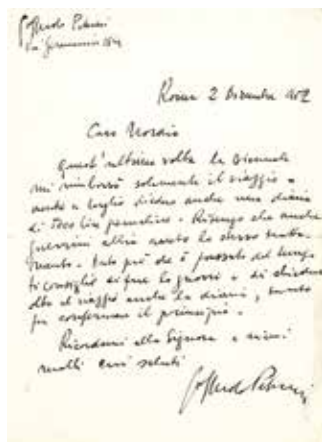 Goffredo Petrassi
Via Germanico 184
Roma 2 Dicembre 1952
Caro Nordio
Quest'ultima volta la Biennale
mi rimborsò solamente il viaggio -
anche a luglio diedero anche una diaria
di 5000 lire giornaliere. Ritengo che anche
Guerrini abbia avuto lo stesso tratta
mento. Dato più che è passato del tempo
ti consiglio di fare lo gnorri e di chiedere
oltre al viaggio anche la diaria, tanto
per confermare il principio.
Ricordami alla Signora e a te i miei
molti cari saluti
Goffredo Petrassi